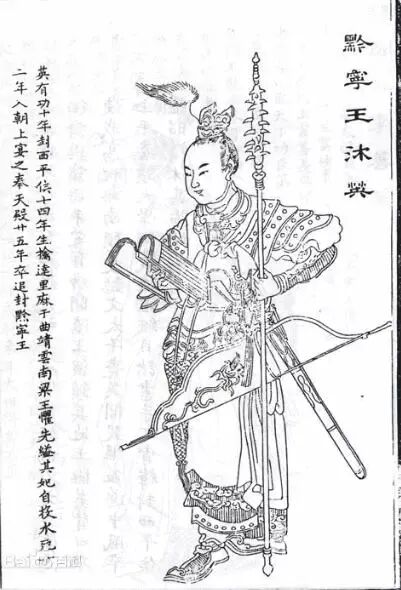 黔寧王沐英
英有功十年封西平侯十四年生擒達里麻于曲靖雲南梁王懼先縊其妃自投水死
二年入朝上宴之奉天殿廿五年卒追封黔寧王
Baidu百科